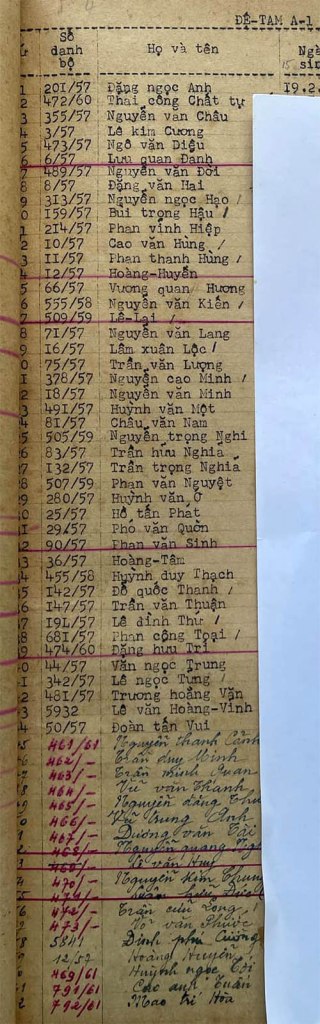 ĐỆ-TAM A-1
Số danh bộ Họ và tên Ngà sin
1 20I/57 Đặng ngọc Anh I9.2.
2 472/60 Thái công Chất tự
3 355/57 Nguyễn văn Châu
4 3/57 Lê kim Cương
5 473/57 Ngô văn Diệu
6 6/57 Lưu quan Đanh
7 489/57 Nguyễn văn Đời
8 8/57 Đặng văn Hai
9 3I3/57 Nguyễn ngọc Hạo /
0 I59/57 Bùi trọng Hậu /
1 2I4/57 Phan vĩnh Hiệp
2 I0/57 Cao văn Hùng /
3 II/57 Phan thanh Hùng /
4 I2/57 Hoàng-Huyễn
5 66/57 Vương quan Hương
6 555/58 Nguyễn văn Kiên /
7 509/59 Lê-Lai /
8 7I/57 Nguyễn văn Lang
9 I6/57 Lâm xuân Lộc /
0 75/57 Trần văn Lượng
I 378/57 Nguyễn cao Minh /
2 I8/57 Nguyễn văn Minh
3 49I/57 Huỳnh văn Một
4 8I/57 Châu văn Nam
5 505/59 Nguyễn trọng Nghi
6 83/57 Trần hữu Nghĩa
7 I32/57 Trần trọng Nghĩa
8 507/59 Phan văn Nguyệt
9 280/57 Huỳnh văn Ở
0 25/57 Hồ tấn Phát
1 29/57 Phó văn Quờn
2 90/57 Phan văn Sinh
3 36/57 Hoàng-Tâm
4 455/58 Huỳnh duy Thạch
5 I42/57 Đỗ quốc Thanh /
6 I47/57 Trần văn Thuận
7 I9L/57 Lê đình Thứ /
8 68I/57 Phan công Toại /
9 474/60 Đặng hữu Trí
0 44/57 Văn ngọc Trung
I 342/57 Lê ngọc Tưng /
2 48I/57 Trương hoằng Văn
3 5932 Lê văn Hoàng-Vinh
4 50/57 Đoàn tấn Vui
5 461/61 Nguyễn thanh Cảnh
6 462/- Trần duy Minh
463/- Trần minh Quan
464/- Vũ văn Thanh
465/- Nguyễn đăng Thu
466/- Vũ trung Anh
467/- Dương văn Tài
2 468/- Nguyễn quang
3 Võ văn Huy
470/- Nguyễn kim Chung
5
6 472/- Trần cửu Long /
473/- Võ văn Phước
8 5841 Đinh phú Cường
9 12/57 Hoàng Huyễn
0 469/61 Huỳnh ngọc Tới
791/61 Cao anh Tuấn
2 792/61 Mao trí Hòa